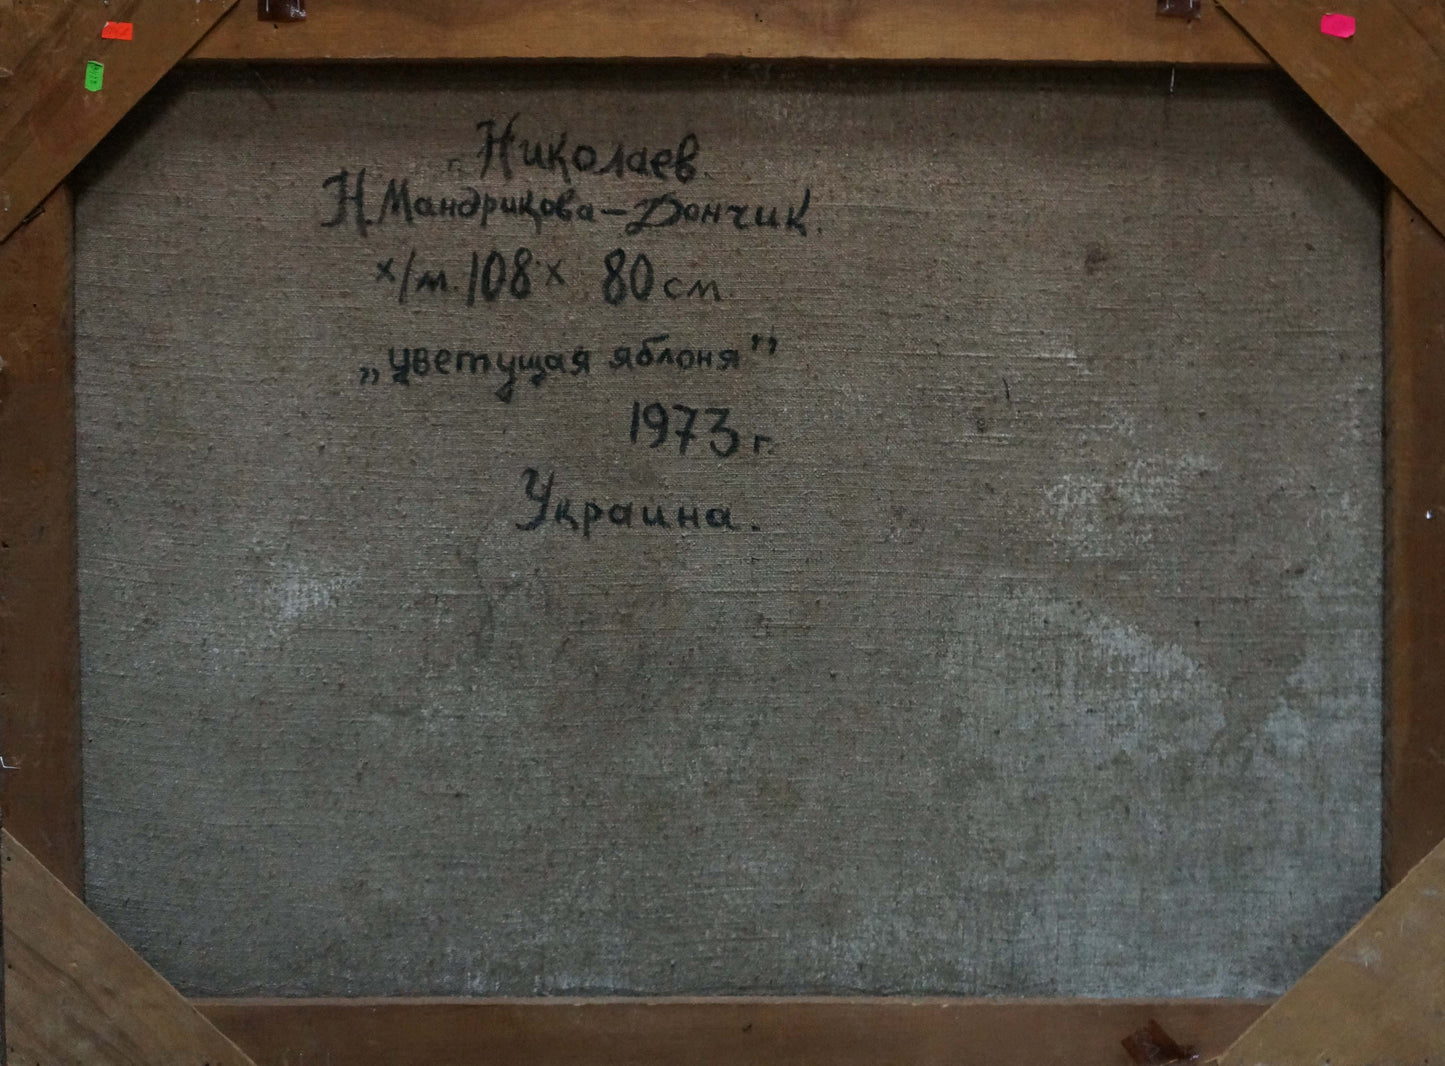 г. Николаев.
Н. Мандрикова-Дончик.
х/м. 108 х 80 см.
„цветущая яблоня"
1973 г.
Украина.